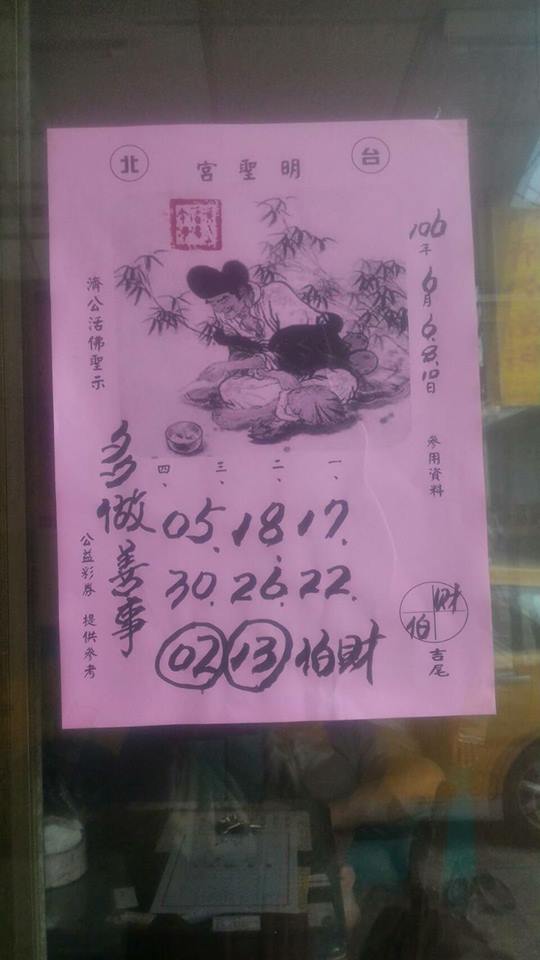 台北
明聖宮
106年6月6.8.10日
參用資料
財
伯
吉尾
濟公活佛聖示
一、二、三、四、
17.18.05
22.26.30
財伯 13 02
多做善事
公益彩券 提供參考